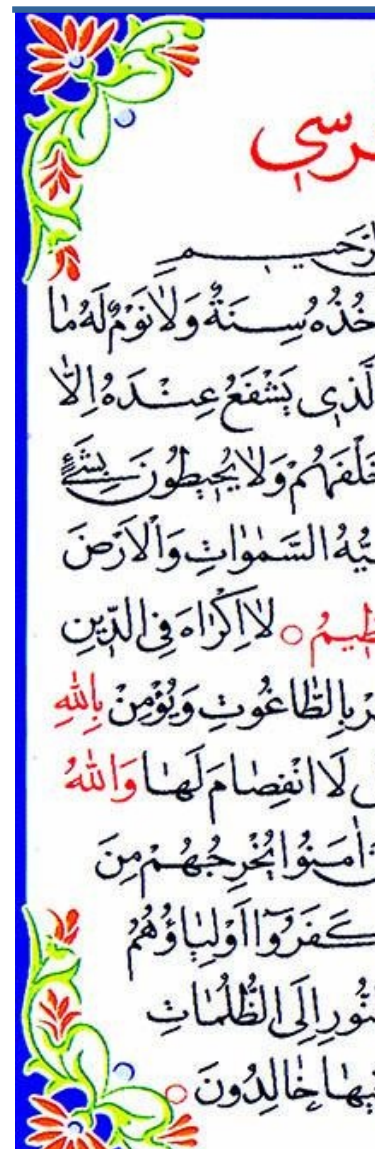 رسي
الرَّحيمِ
خُذُهُ سِنَةٌ وَلَا نَوْمٌ لَهُ مَا
الَّذي يَشْفَعُ عِنْدَهُ اِلَّا
خَلْفَهُمْ وَلَا يُحيطُونَ بِشَيْءٍ
يُّهُ السَّمٰوَاتِ وَالْاَرْضَ
ظيمُ ○ لَا اِكْرَاهَ فِي الدّينِ
رْ بِالطَّاغُوتِ وَيُؤْمِنْ بِاللّٰهِ
لَا انْفِصَامَ لَهَا وَاللّٰهُ
اٰمَنُوا يُخْرِجُهُمْ مِنَ
كَفَرُٓوا اَوْلِيَٓاؤُهُمُ
نُّورِ اِلَى الظُّلُمَاتِ
فيهَا خَالِدُونَ ○